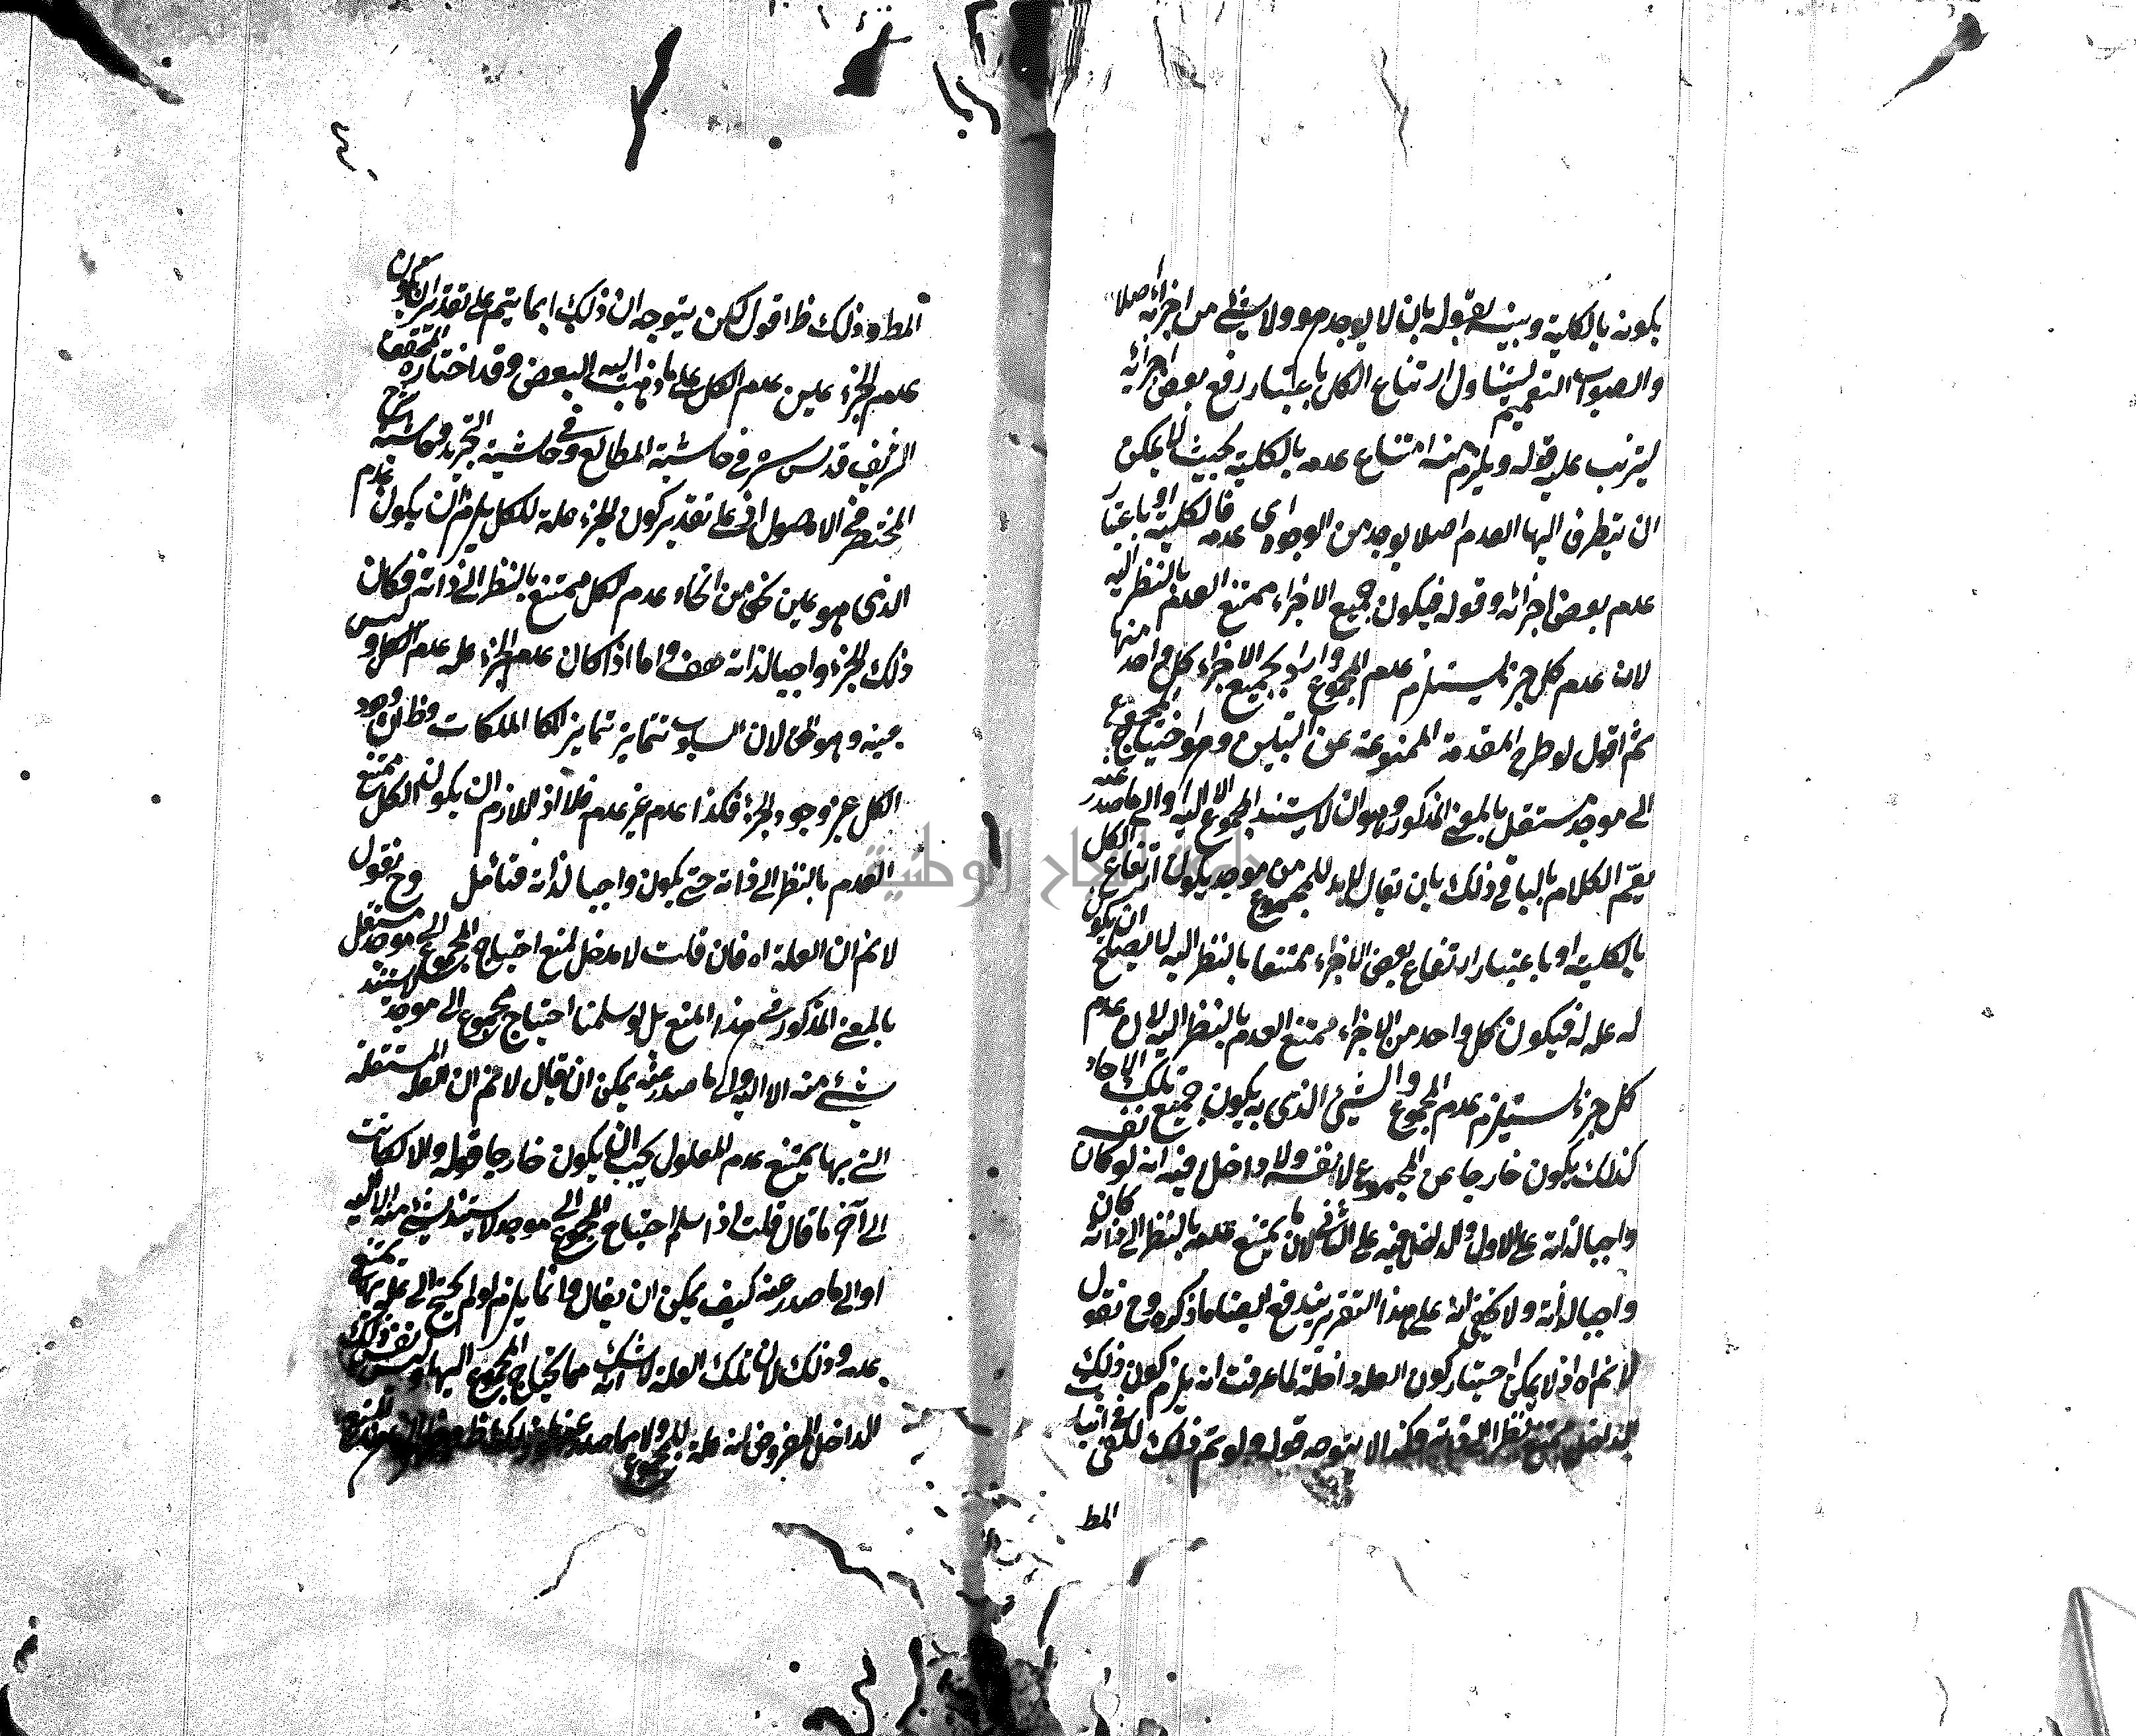 يكونه بالكلية وبينه بقوله بان لا يوجد هو ولا شئ من اجزائه اصلا
والصواب التعميم ليتناول ارتفاع الكل باعتبار رفع بعض اجزائه
ليترتب عليه قوله ويلزم منه امتناع عدمه بالكلية بحيث لا يمكن
ان يتطرق اليها العدم اصلا بوجه من الوجوه اى عدمه بالكلية او باعتبار
عدم بعض اجزائه وقوله فيكون جميع الاجزاء ممتنع العدم بالنظر اليه
لان عدم كل جزء يستلزم عدم المجموع واراد بجميع الاجزاء كل واحد منها
ثم اقول لو طرح المقدمة الممنوعة عن البين وهو احتياج المجموع
الى موجد مستقل بالمعنى المذكور وهو ان لا يستند المجموع الا اليه او الى ما صدر عنه
يتم الكلام بالباقى وذلك بان يقال لا بد للمجموع من موجد يكون ارتفاع الكل
بالكلية او باعتبار ارتفاع بعض الاجزاء ممتنعا بالنظر اليه لا يصلح ان يكون
له علة له فيكون كل واحد من الاجزاء ممتنع العدم بالنظر اليه لان عدم
كل جزء يستلزم عدم المجموع والشئ الذى به يكون جميع تلك الاحاد
كذلك يكون خارجا عن المجموع لا نفسه ولا داخل فيه انه لو كان نفسه كان
واجبا لذاته على الاول والداخل فيه على الثانى لان ما يمتنع عدمه بالنظر الى ذاته كان
واجبا لذاته ولا يخفى انه على هذا التقرير يندفع ايضا ما ذكره وح نقول
لا نم اه اذ لا يمكن اختيار كون العلة داخلة لما عرفت انه يلزم كون ذلك
الداخل ممتنع بالنظر الى ذاته وكذا لا يتوجه قوله ولو تم ذلك لكفى فى اثبات
المط
المط وذلك ظ اقول لكن يتوجه ان ذلك انما يتم على تقدير ان يكون
عدم الجزء عين عدم الكل على ما ذهب اليه البعض وقد اختاره المحقق
الشريف قدس سره فى حاشية المطالع وفى حاشية التجريد وحاشية شرح
المختصر فى الاصول اذ على تقدير كون الجزء علة للكل يلزم ان يكون عدم
الذى هو عين نحو من انحاء عدم الكل ممتنع بالنظر الى ذاته فكان
ذلك الجزء واجبا لذاته هف واما اذا كان عدم الجزء علة عدم الكل وليس
عينه وهو الحق لان السلوب تتمايز تمايز الملكات وظ ان وجود
الكل غير وجود الجزء فكذا عدمه غير عدمه فلا اذ اللازم ان يكون الكل ممتنع
العدم بالنظر الى ذاته حتى يكون واجبا لذاته فتامل وح نقول
لا نم ان العلة اه فان قلت لا مدخل لمنع احتياج المجموع الى موجد مستقل
بالمعنى المذكور فى هذا المنع بل لو سلمنا احتياج مجموع الى موجد لا يستند
شئ منه الا اليه او الى ما صدر عنه يمكن ان يقال لا نم ان العلة المستقلة
التى بها يمتنع عدم المعلول يجب ان يكون خارجا قوله والا لكانت
الى آخر ما قال قلت اذا سلم احتياج المجموع الى موجد لا يستند شئ منه الا اليه
او الى ما صدر عنه كيف يمكن ان يقال وانما يلزم لو لم يحتج الى علة بها يمتنع
عدمه وذلك لان تلك العلة لا شك انه مما يحتاج المجموع اليها وليس نفس ذلك
الداخل المفروض انه علة للمجموع ولا مما صدر عنه